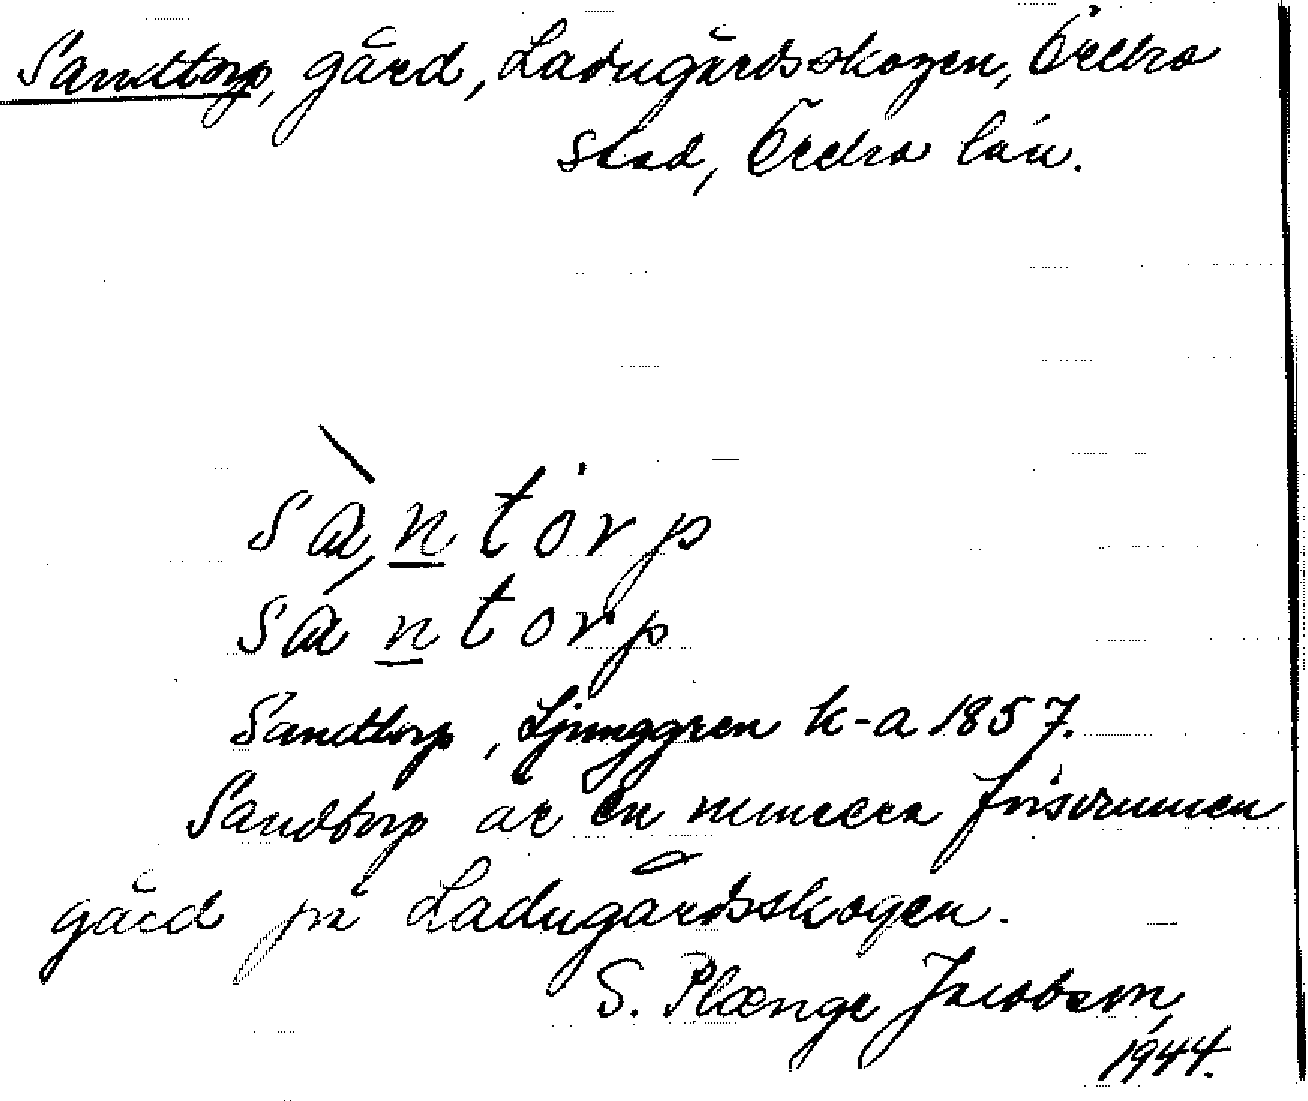 Sandtorp, gård, Ladugårdsskogen, Örebro
stad, Örebro län.
sàntȯrp
sántorp
Sandtorp, Ljunggren k-a 1857.
Sandtorp är en numera försvunnen
gård på Ladugårdsskogen.
S. Plænge Jacobson,
1944.